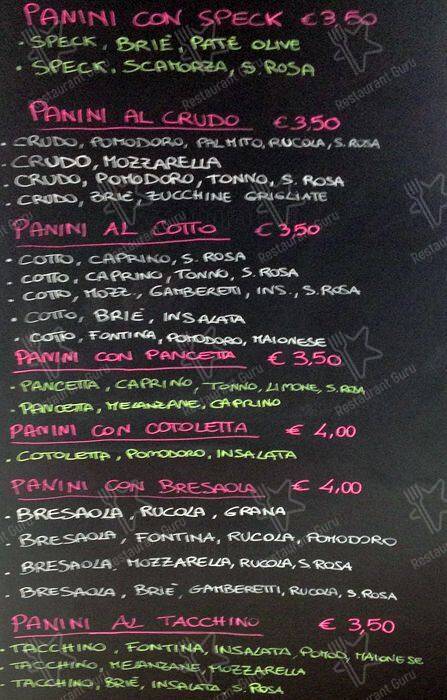 PANINI CON SPECK €3,50
• SPECK, BRIÈ, PATÈ OLIVE
• SPECK, SCAMORZA, S. ROSA
PANINI AL CRUDO €3,50
• CRUDO, POMODORO, PALMITO, RUCOLA, S. ROSA
• CRUDO, MOZZARELLA
• CRUDO, POMODORO, TONNO, S. ROSA
• CRUDO, BRIÈ, ZUCCHINE GRIGLIATE
PANINI AL COTTO €3,50
• COTTO, CAPRINO, S. ROSA
• COTTO, CAPRINO, TONNO, S. ROSA
• COTTO, MOZZ., GAMBERETI, INS., S. ROSA
• COTTO, BRIE, INSALATA
COTTO, FONTINA, POMODORO, MAIONESE
PANINI CON PANCETTA €3,50
• PANCETTA, CAPRINO, TONNO, LIMONE, S. ROSA
• PANCETTA, MELANZANE, CAPRINO
PANINI CON COTOLETTA €4,00
• COTOLETTA, POMODORO, INSALATA
PANINI CON BRESAOLA €4,00
• BRESAOLA, RUCOLA, GRANA
• BRESAOLA, FONTINA, RUCOLA, POMODORO
• BRESAOLA, MOZZARELLA, RUCOLA, S. ROSA
• BRESAOLA, BRIÈ, GAMBERETTI, RUCOLA, S. ROSA
PANINI AL TACCHINO €3,50
• TACCHINO, FONTINA, INSALATA, POMOD, MAIONESE
• TACCHINO, MELANZANE, MOZZARELLA
• TACCHINO, BRIÈ, INSALATA, S. ROSA
Restaurant Guru